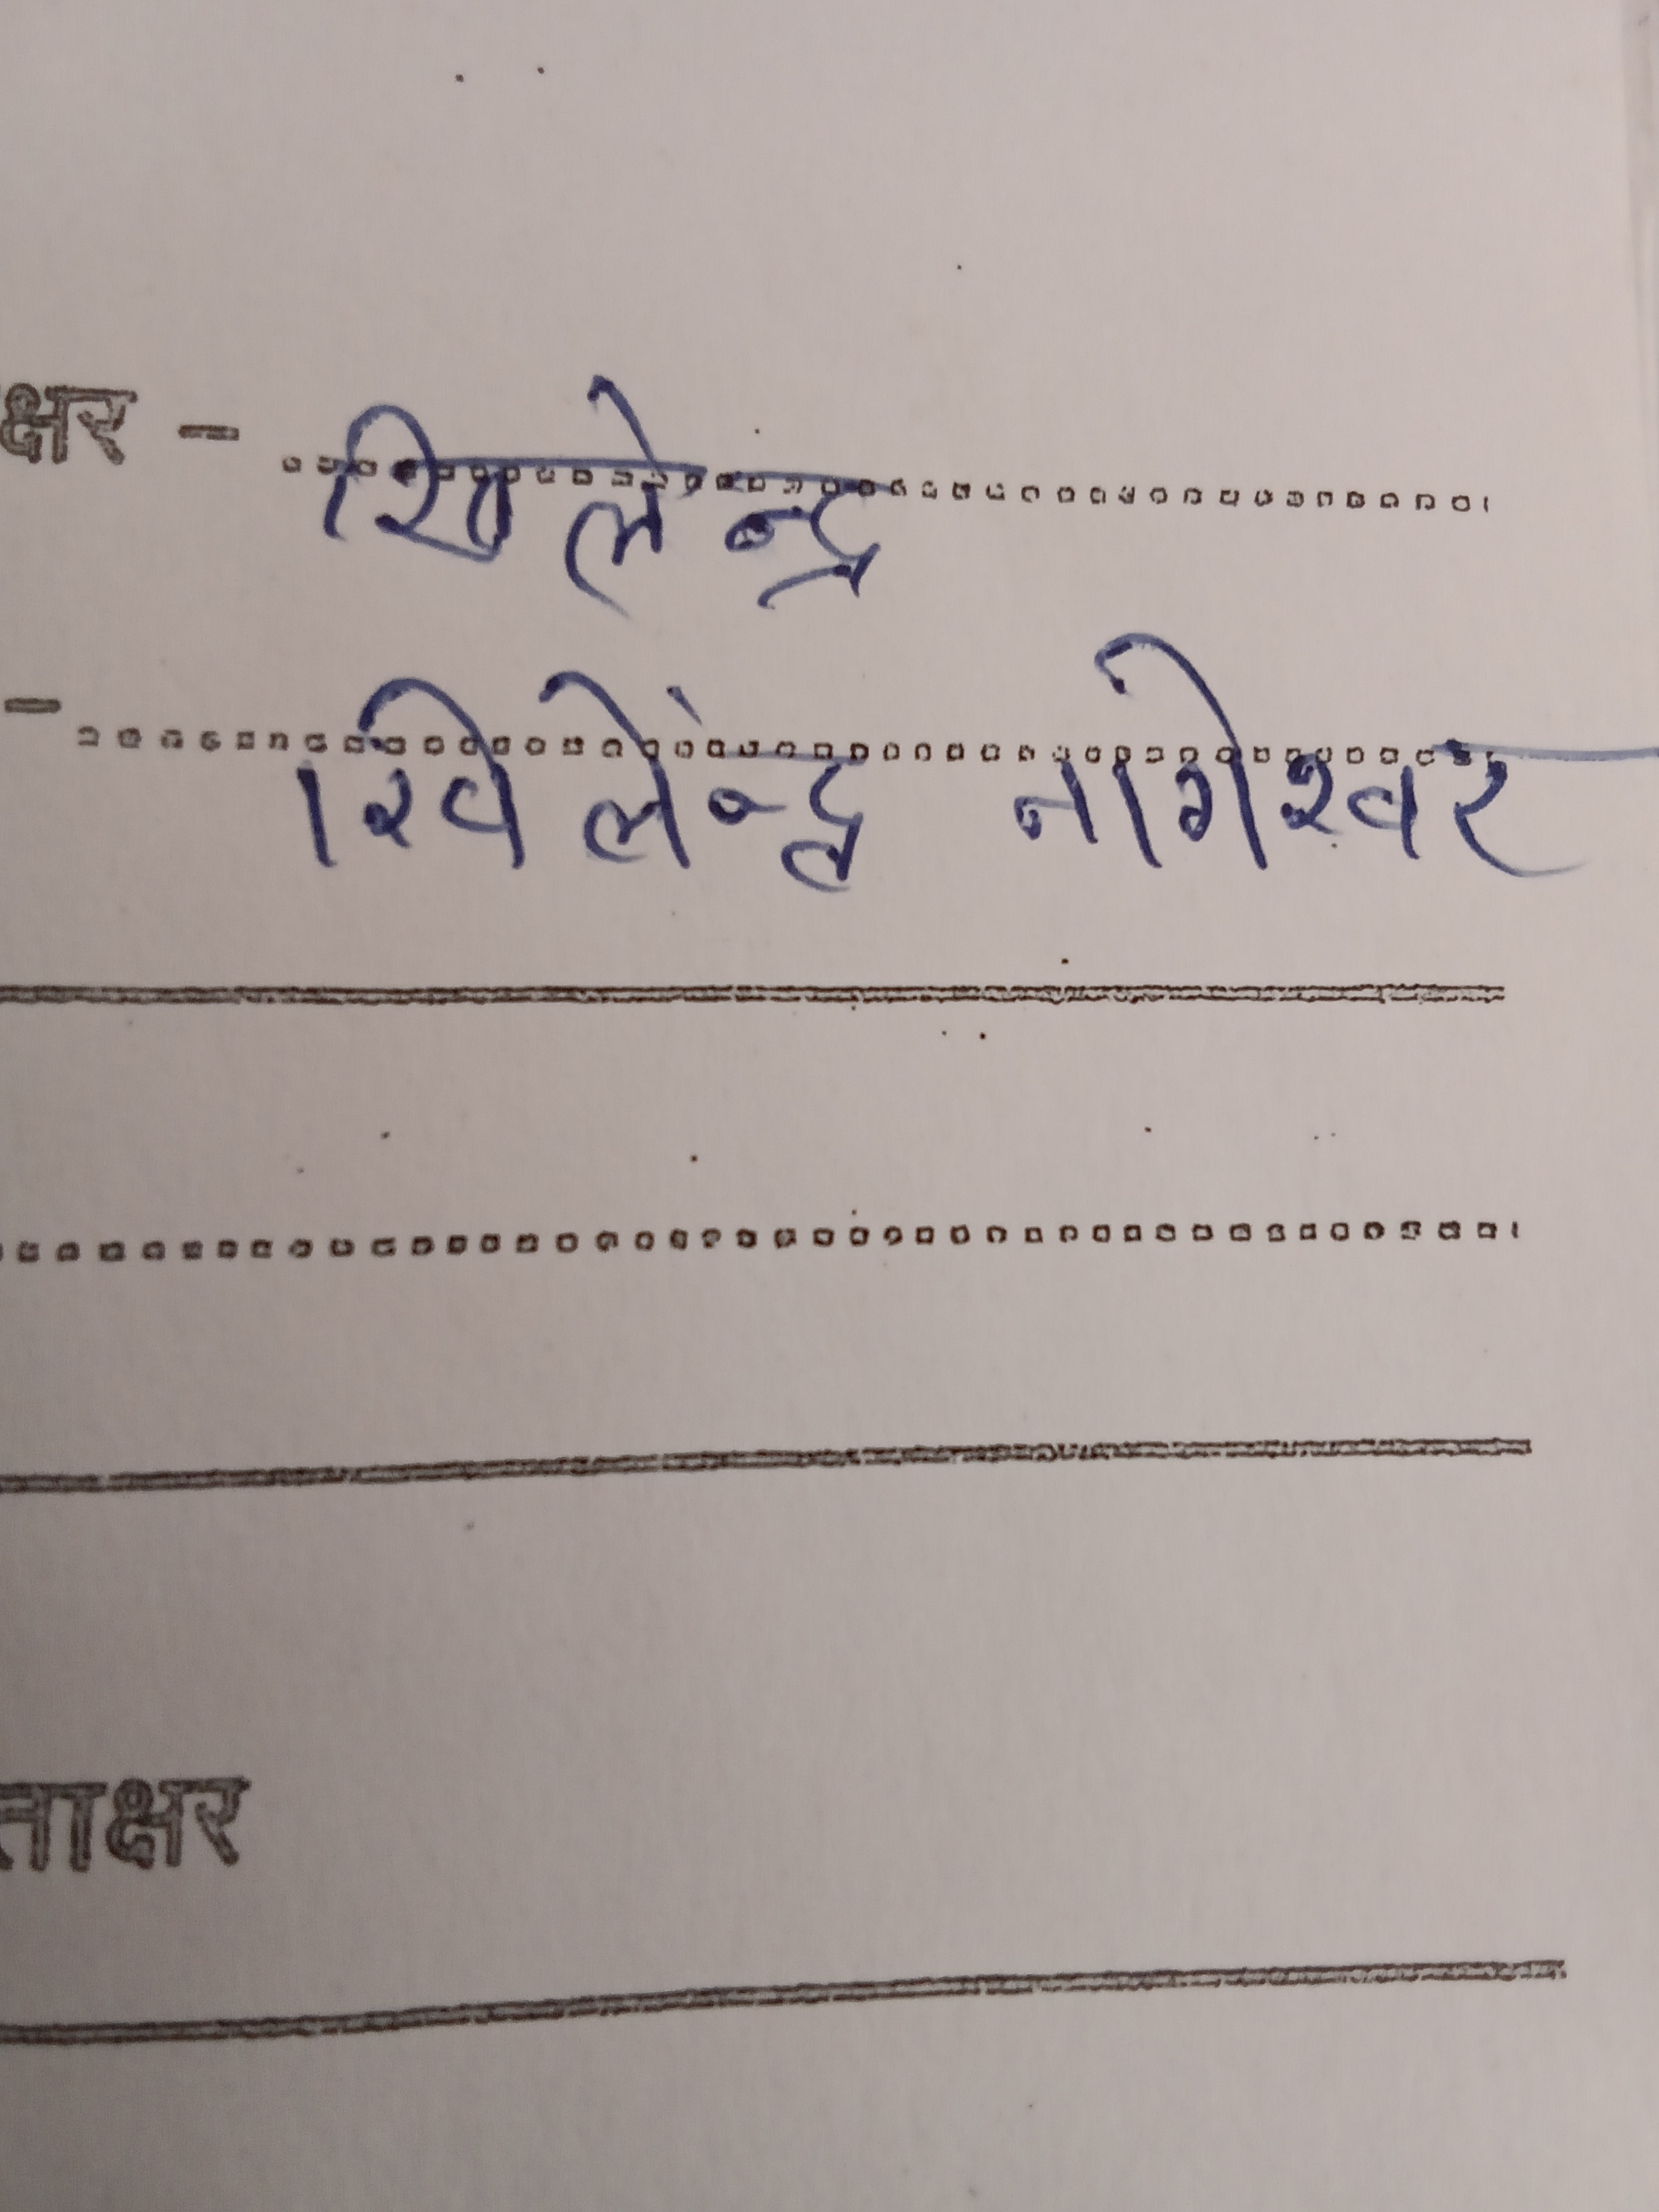 क्षर - खिलेन्द्र
- खिलेंन्द्र नागेश्वर
ताक्षर